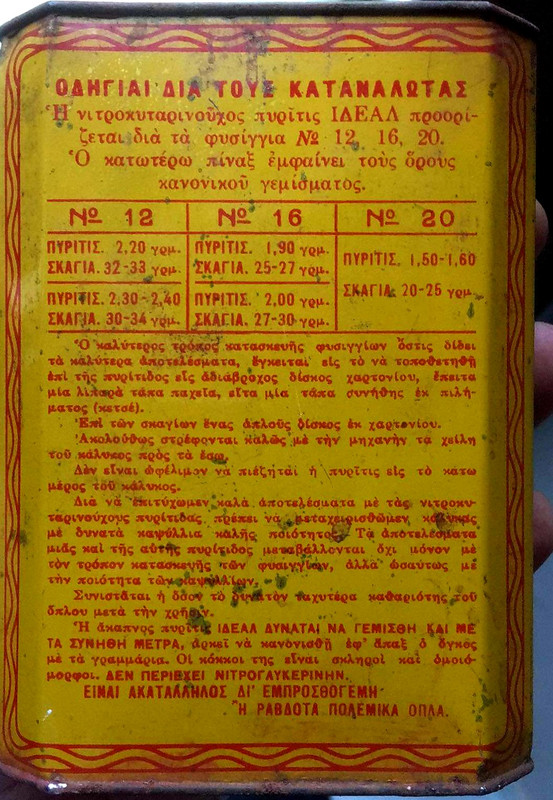 ΟΔΗΓΙΑΙ ΔΙΑ ΤΟΥΣ ΚΑΤΑΝΑΛΩΤΑΣ
Ἡ νιτροκυταρινοῦχος πυρῖτις ΙΔΕΑΛ προορί-
ζεται διὰ τὰ φυσίγγια № 12, 16, 20.
Ὁ κατωτέρω πίναξ ἐμφαίνει τοὺς ὅρους
κανονικοῦ γεμίσματος.
№ 12 № 16 № 20
ΠΥΡΙΤΙΣ. 2,20 γρμ. ΠΥΡΙΤΙΣ. 1,90 γρμ.
ΣΚΑΓΙΑ. 32-33 γρμ. ΣΚΑΓΙΑ. 25-27 γρμ.
ΠΥΡΙΤΙΣ. 1,50-1,60
ΣΚΑΓΙΑ. 20-25 γρμ.
ΠΥΡΙΤΙΣ. 2,30-2,40 ΠΥΡΙΤΙΣ. 2,00 γρμ.
ΣΚΑΓΙΑ. 30-34 γρμ. ΣΚΑΓΙΑ. 27-30 γρμ.
Ὁ καλύτερος τρόπος κατασκευῆς φυσιγγίων ὅστις δίδει
τὰ καλύτερα ἀποτελέσματα, ἔγκειται εἰς τὸ νὰ τοποθετηθῇ
ἐπὶ τῆς πυρίτιδος εἷς ἀδιάβροχος δίσκος χαρτονίου, ἔπειτα
μία λιπαρὰ τάπα παχεῖα, εἶτα μία τάπα συνήθης ἐκ πιλή-
ματος (κετσέ).
Ἐπὶ τῶν σκαγίων ἕνας ἁπλοῦς δίσκος ἐκ χαρτονίου.
Ἀκολούθως στρέφονται καλῶς μὲ τὴν μηχανὴν τὰ χείλη
τοῦ κάλυκος πρὸς τὰ ἔσω.
Δὲν εἶναι ὠφέλιμον νὰ πιέζηται ἡ πυρῖτις εἰς τὸ κάτω
μέρος τοῦ κάλυκος.
Διὰ νὰ ἐπιτύχωμεν καλὰ ἀποτελέσματα μὲ τὰς νιτροκυ-
ταρινούχους πυρίτιδας πρέπει νὰ μεταχειρισθῶμεν κάλυκας
μὲ δυνατὰ καψύλλια καλῆς ποιότητος. Τὰ ἀποτελέσματα
μιᾶς καὶ τῆς αὐτῆς πυρίτιδος μεταβάλλονται ὄχι μόνον μὲ
τὸν τρόπον κατασκευῆς τῶν φυσιγγίων, ἀλλὰ ὡσαύτως μὲ
τὴν ποιότητα τῶν καψυλλίων.
Συνιστᾶται ἡ ὅσον τὸ δυνατὸν ταχυτέρα καθαριότης τοῦ
ὅπλου μετὰ τὴν χρῆσιν.
Ἡ ἄκαπνος πυρῖτις ΙΔΕΑΛ ΔΥΝΑΤΑΙ ΝΑ ΓΕΜΙΣΘΗ ΚΑΙ ΜΕ
ΤΑ ΣΥΝΗΘΗ ΜΕΤΡΑ, ἀρκεῖ νὰ κανονισθῇ ἐφ' ἅπαξ ὁ ὄγκος
μὲ τὰ γραμμάρια. Οἱ κόκκοι της εἶναι σκληροὶ καὶ ὁμοιό-
μορφοι. ΔΕΝ ΠΕΡΙΕΧΕΙ ΝΙΤΡΟΓΛΥΚΕΡΙΝΗΝ.
ΕΙΝΑΙ ΑΚΑΤΑΛΛΗΛΟΣ ΔΙ' ΕΜΠΡΟΣΘΟΓΕΜΗ
Ἢ ΡΑΒΔΩΤΑ ΠΟΛΕΜΙΚΑ ΟΠΛΑ.